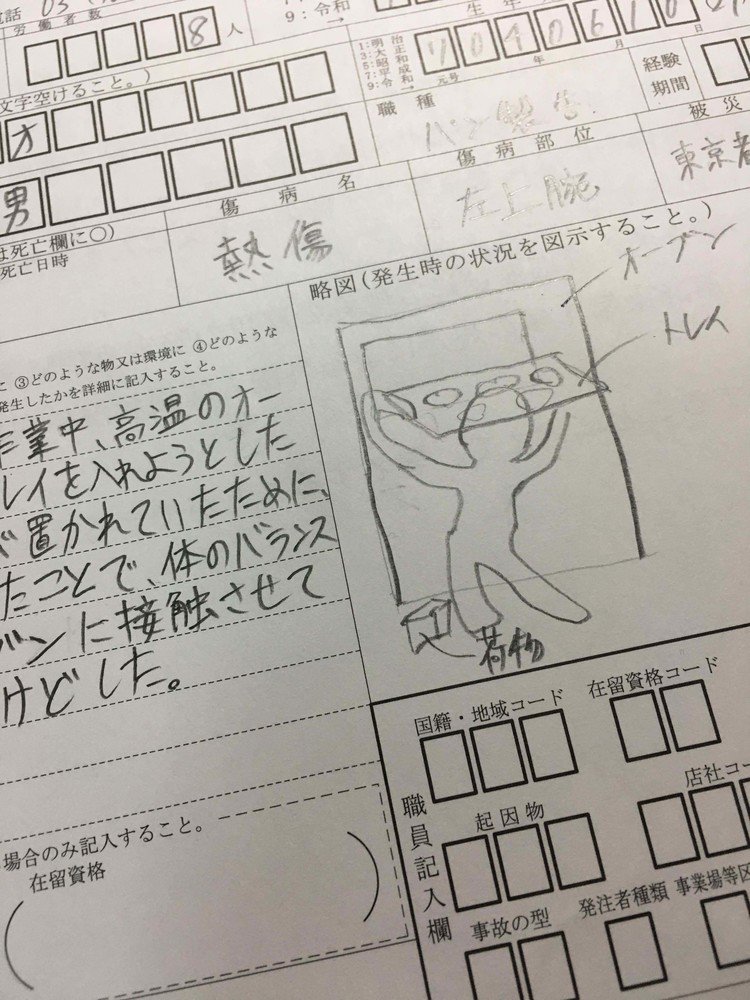 電話 03
労働者数
8 人
9：令和→
1：明治
3：大正
5：昭和
7：平成
9：令和
→
7040610
元号 年 月 日
文字空けること。）
オ
職種
パン製造
経験
期間
男
傷病名
傷病部位
被災
は死亡欄に〇）
死亡日時
熱傷
左上腕
東京都
略図（発生時の状況を図示すること。）
オーブン
トレイ
に ③どのような物又は環境に ④どのような
発生したかを詳細に記入すること。
作業中、高温のオー
レイを入れようとした
が置かれていたために、
たことで、体のバランス
ブンに接触させて
けどした。
荷物
国籍・地域コード
在留資格コード
職員記入欄
起因物
店社コー
場合のみ記入すること。
在留資格
事故の型
発注者種類
事業場等区